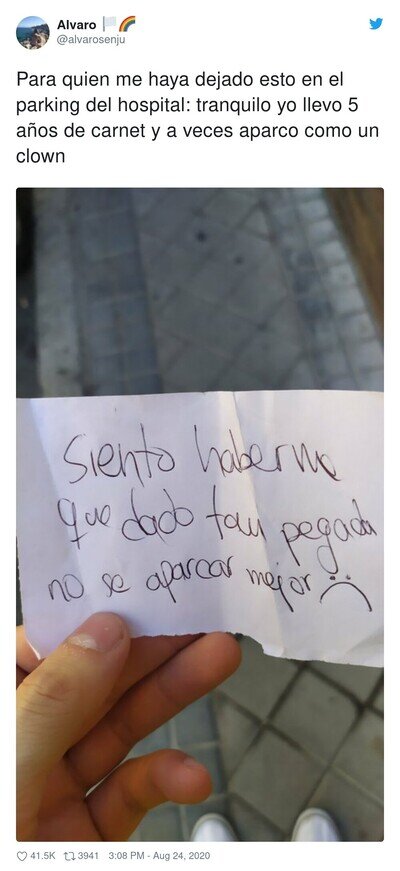 Alvaro
@alvarosenju
Para quien me haya dejado esto en el
parking del hospital: tranquilo yo llevo 5
años de carnet y a veces aparco como un
clown
Siento haberme
que dado tan pegada
no se aparcar mejor :(
41.5K 3941 3:08 PM - Aug 24, 2020